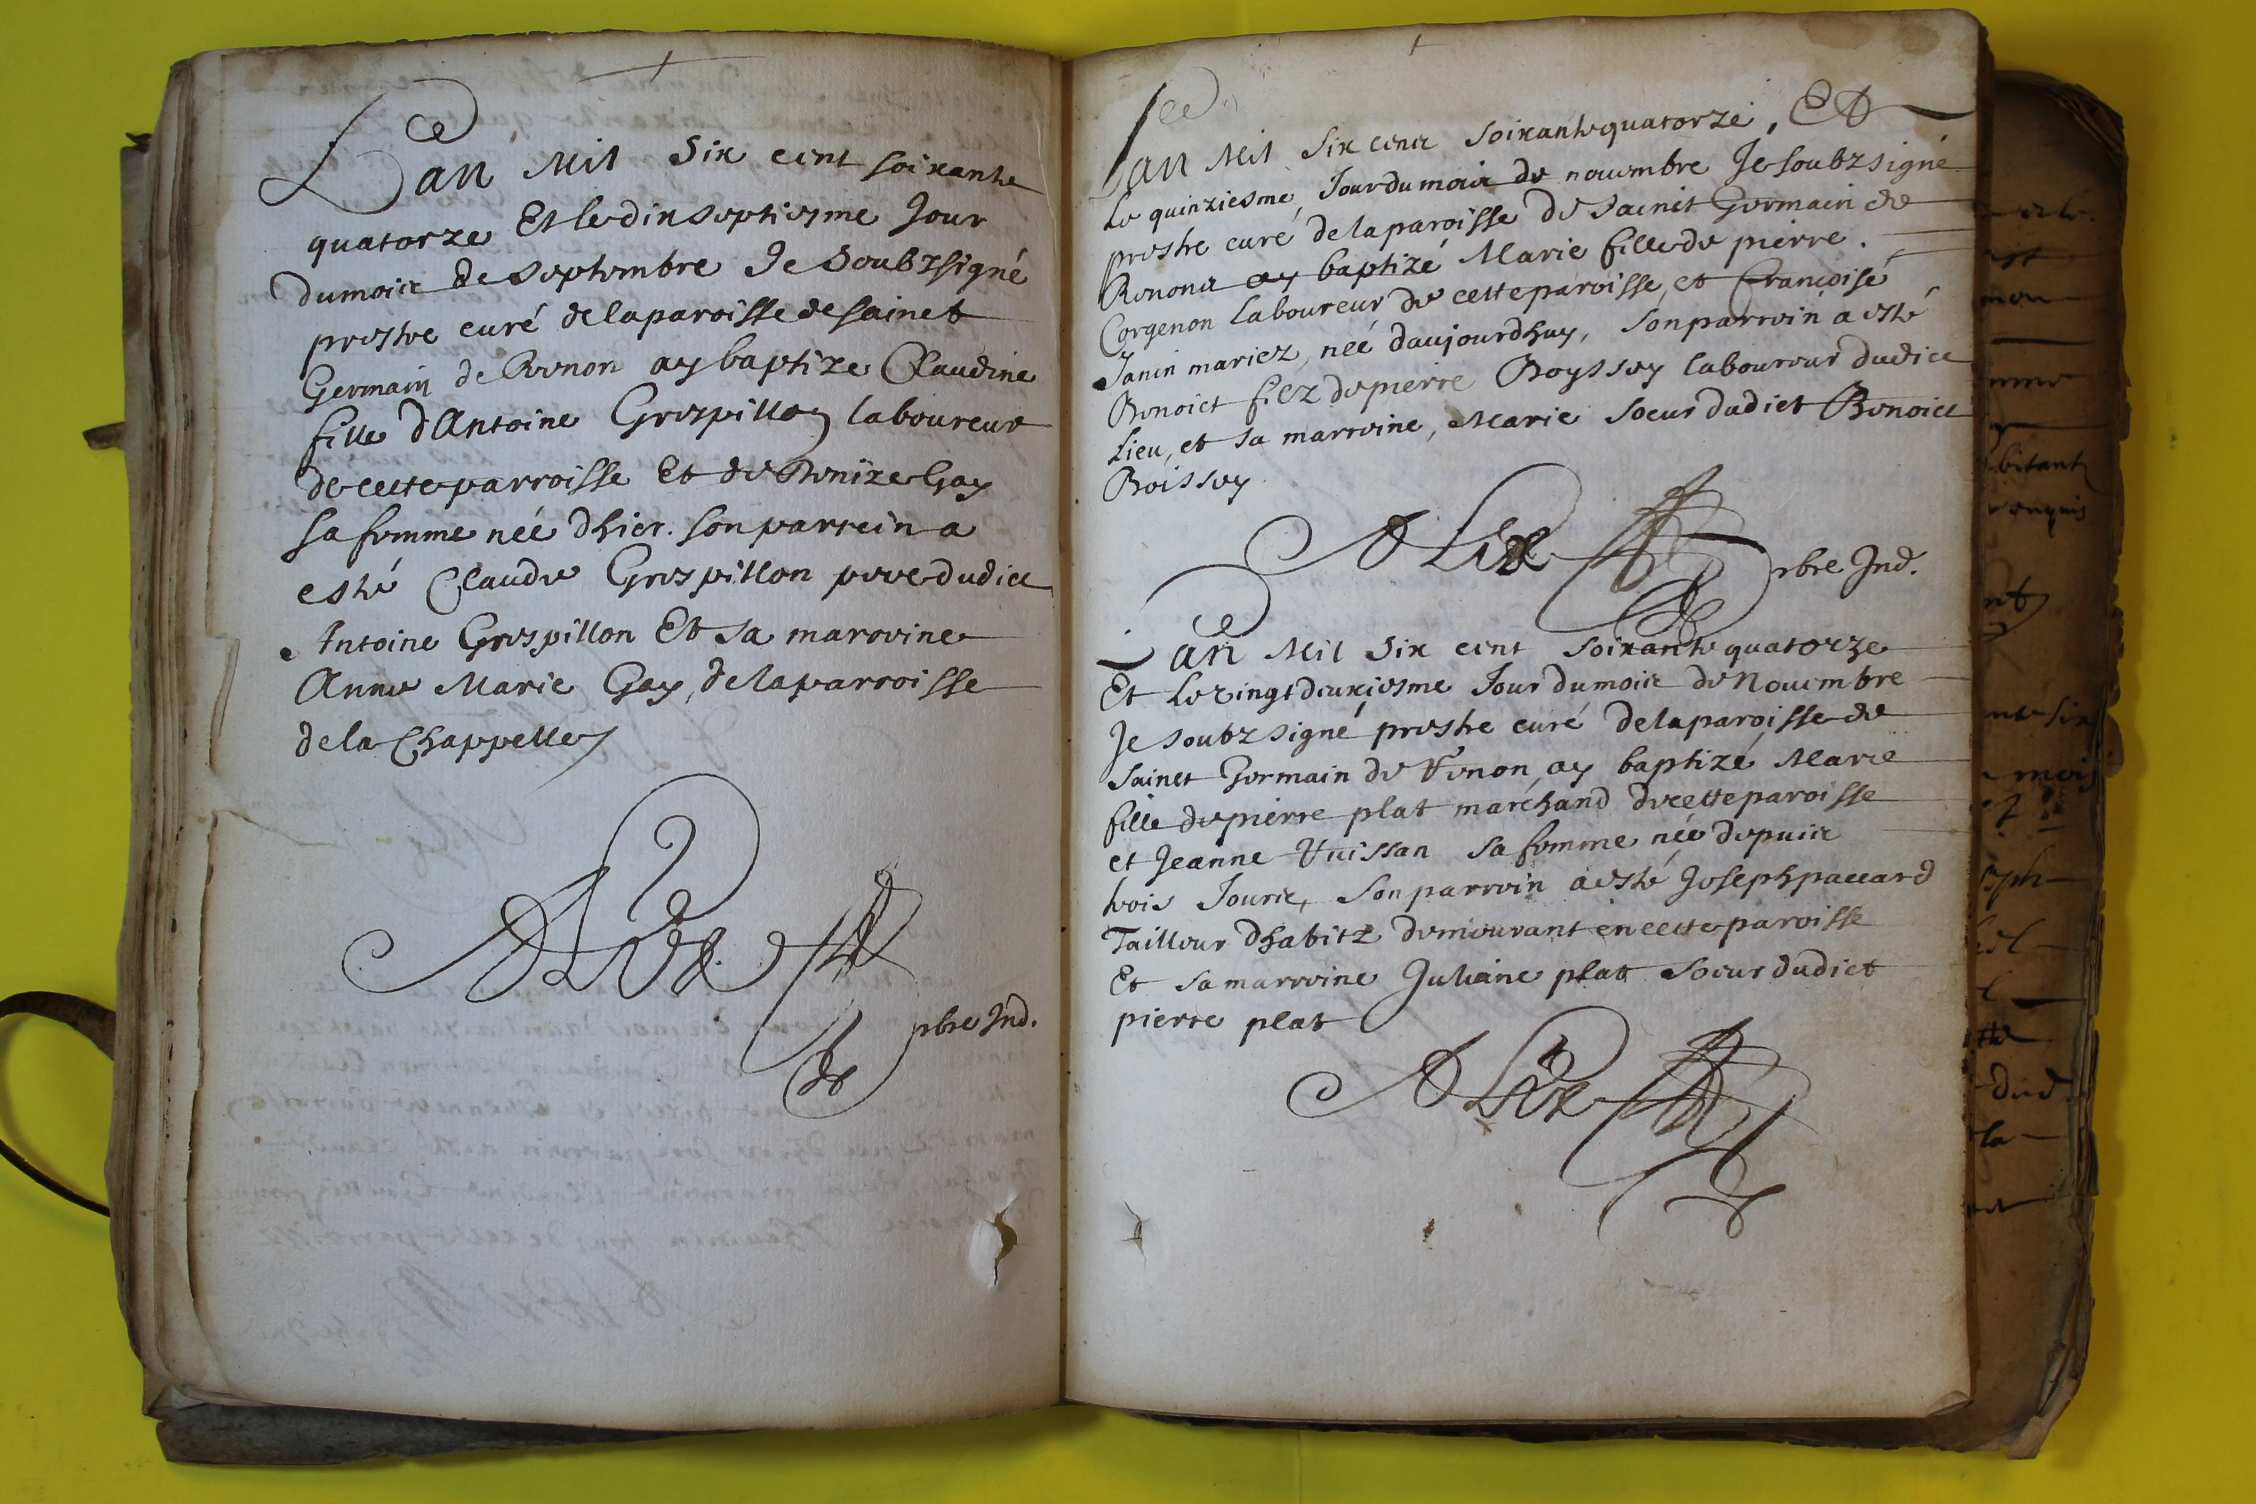 Lan Mil Six cent soixante
quatorze Et le dixseptiesme Jour
du mois de Septembre Je Soubzsigné
prestre curé de la paroisse de sainct
Germain de Renon ay baptize Claudine
fille d'Antoine Grospillon laboureur
de cette parroisse Et de Benize Gay
sa femme née dhier. son parrein a
esté Claude Grospillon pere dudict
Antoine Grospillon Et sa marrine
Anne Marie Gay, de la parroisse
de la Chappelle
Alix
pbre Ind.
Lan Mil Six cent soixante quatorze, Et
Le quinziesme Jour du mois de novembre Je soubzsigné
prestre curé de la paroisse de Sainct Germain de
Renon ay baptizé Marie fille de pierre
Corgenon laboureur de cette paroisse, et Francoise
Janin mariez, née daujourdhuy, son parrein a esté
Benoict filz de pierre Boyssey laboureur dudict
Lieu, et sa marreine, Marie soeur dudict Benoict
Boissey
Alix
pbre Ind.
Lan Mil Six cent soixante quatorze
Et Le vingtdeuxiesme Jour du mois de Novembre
Je soubzsigné prestre curé de la paroisse de
Sainct Germain de Renon, ay baptizé Marie
fille de pierre plat marchand de cette paroisse
et Jeanne Vuissan sa femme née depuis
trois Jours, Son parrein a esté Joseph paccard
Tailleur dhabitz demeurant en cette paroisse
Et sa marreine Juliane plat soeur dudict
pierre plat
Alix